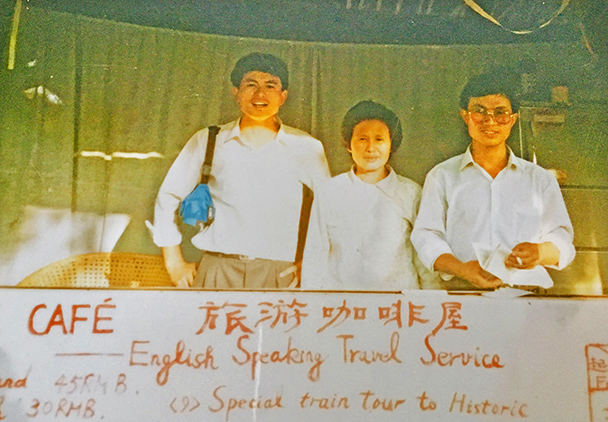 CAFÉ 旅游咖啡屋
—— English Speaking Travel Service
and 45RMB.
30RMB. <9> Special train tour to Historic
起